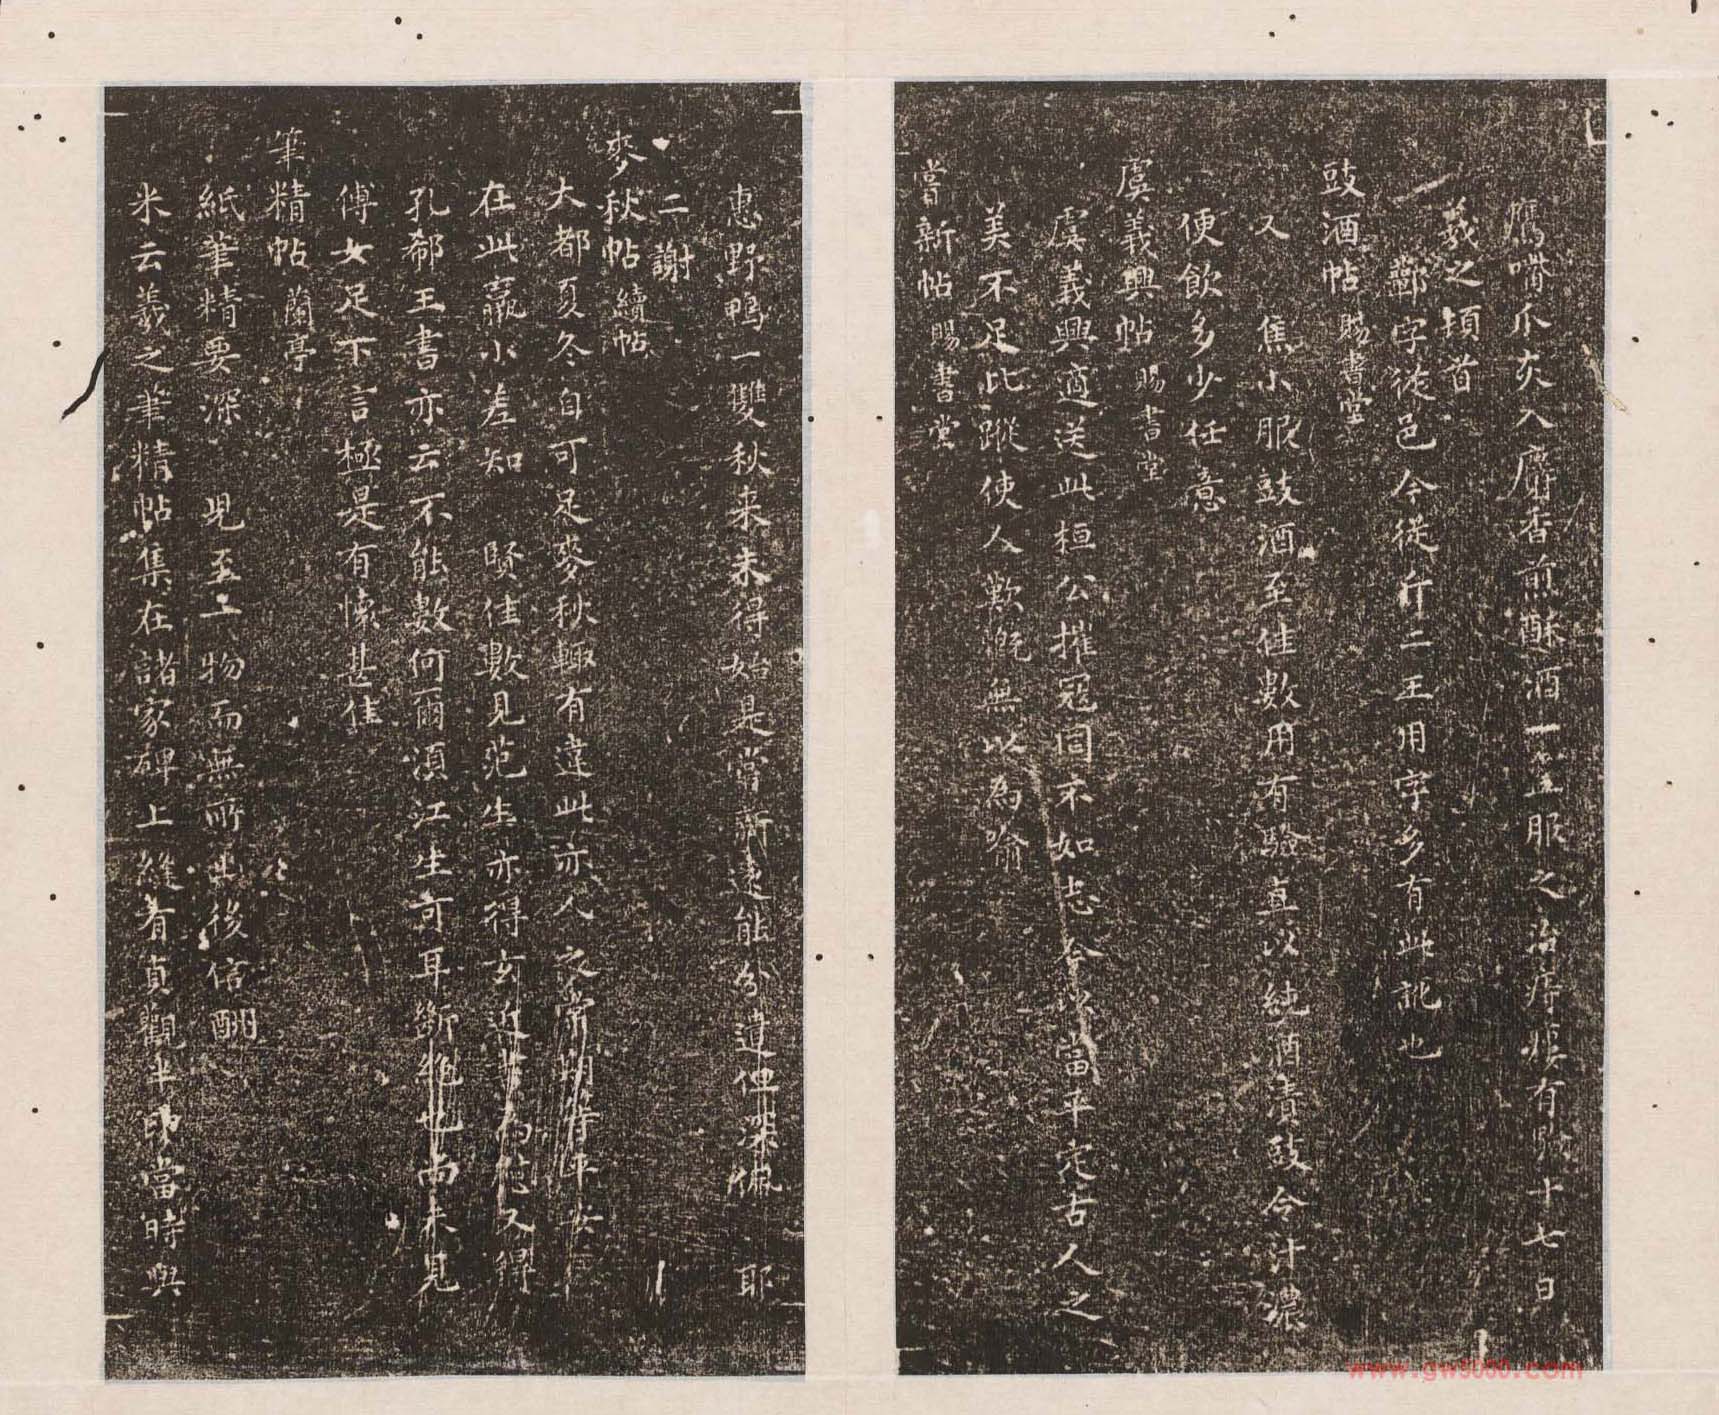 鷹嘴爪灰入麝香煎酥酒一盞服之治痔瘻有驗十七日
羲之頓首
酈字從邑今從斤二王用字多有此訛也
豉酒帖 賜書堂
又 焦小服豉酒至佳數用有驗直以純酒漬豉令汁濃
便飲多少任意
虞義興帖 賜書堂
虞義興適送此桓公摧寇罔不如志今以當平定古人之
美不足比蹤使人歎慨無以為喻
嘗新帖 賜書堂
惠野鴨一雙秋來未得始是嘗新遠能分遺但深佩 耶
二謝
麥秋帖 續帖
大都夏冬自可足麥秋輒有違此亦人之常期等平安
在此羸小差知 賢佳數見范生亦得玄近 又得
孔郗王書亦云不能數何爾須江生可耳斷絕也尚未見
傅女足下言極是有懷甚佳
筆精帖 蘭亭
紙筆精要深 見至二物而無所出後信酬
米云羲之筆精帖集在諸家碑上縫有貞觀半印當時與
www.gw5000.com